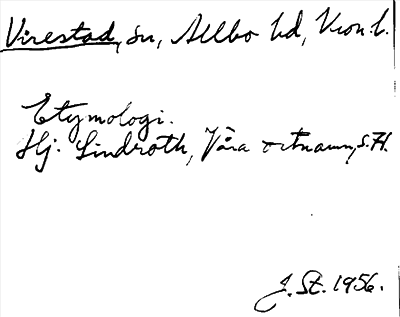 Virestad, sn, Allbo hd, Kron.l.
Etymologi.
Hj. Lindroth, Våra ortnamn, s.
J. St. 1956.